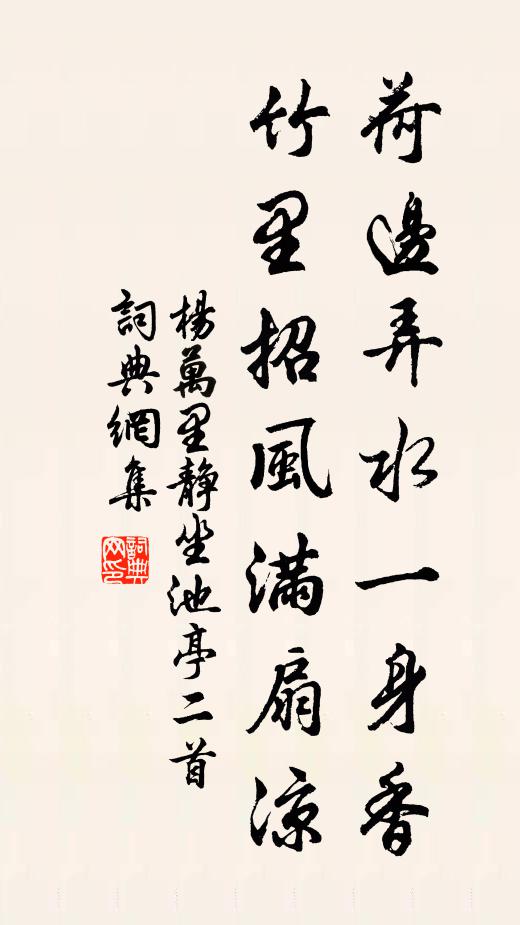 荷邊弄水一身香
竹里招風滿扇涼
楊萬里靜坐池亭二首
詞典網集
詞典网印